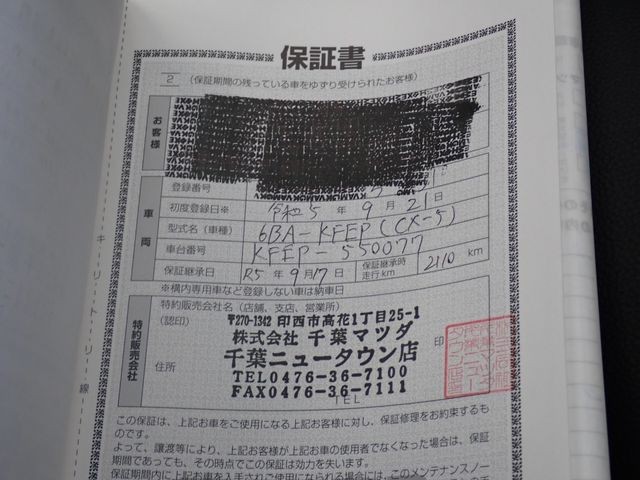 保証書
2 (保証期間の残っている車をゆずり受けられたお客様)
お客様
車両
登録番号
初度登録日※ 令和5年9月21日
型式名(車種) 6BA-KFEP(CX-5)
車台番号 KFEP-550077
保証継承日 R5年9月17日 保証継承時走行km 2110 km
※構内専用車など登録しない車は納車日
特約販売会社
特約販売会社名(店舗、支店、営業所)
(認印) 〒270-1342 印西市高花1丁目25-1
株式会社 千葉マツダ 印
住所 千葉ニュータウン店
TEL0476-36-7100
FAX0476-36-7111
TEL
この保証は、上記お車をご使用になる上記お客様に対し、保証修理をお約束するも
のです。
よって、譲渡等により、上記お客様が上記お車の使用者でなくなった場合は、保証
期間であっても、その時点でこの保証は効力を失います。
保証期間内に上記お車を入手されご使用になられる場合には、このメンテナンスノー
キリトリ線